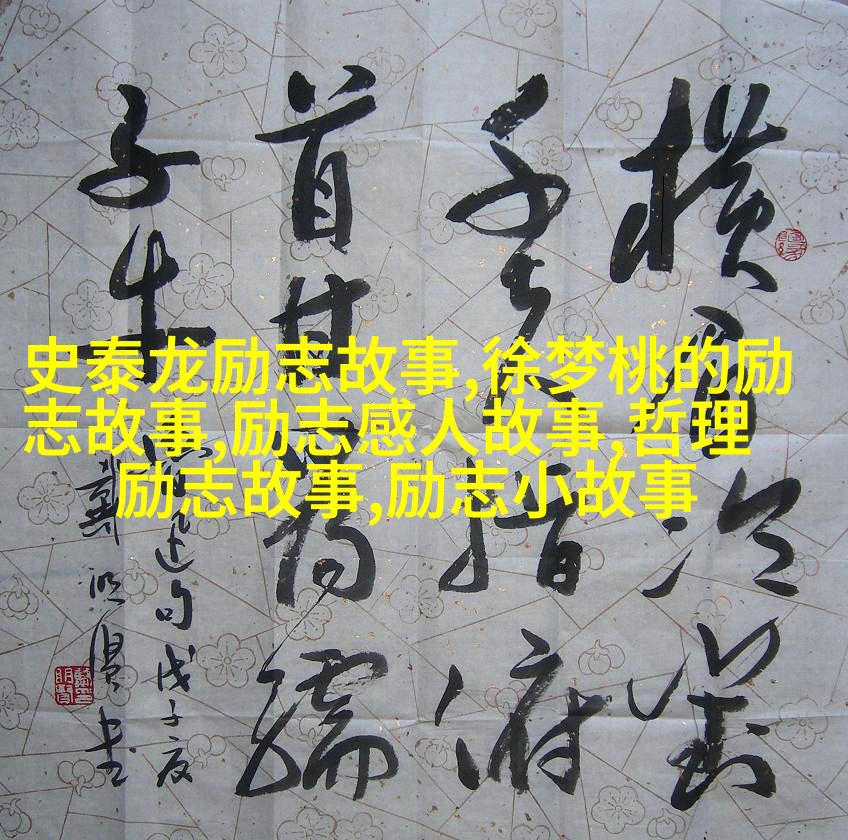 史泰龙励志故事,徐梦桃的励
志故事,励志感人故事,哲理
励志故事,励志小故事
横眉冷對
千夫指俯
首甘為孺
子牛
迅句戊子夏
戴明賢书